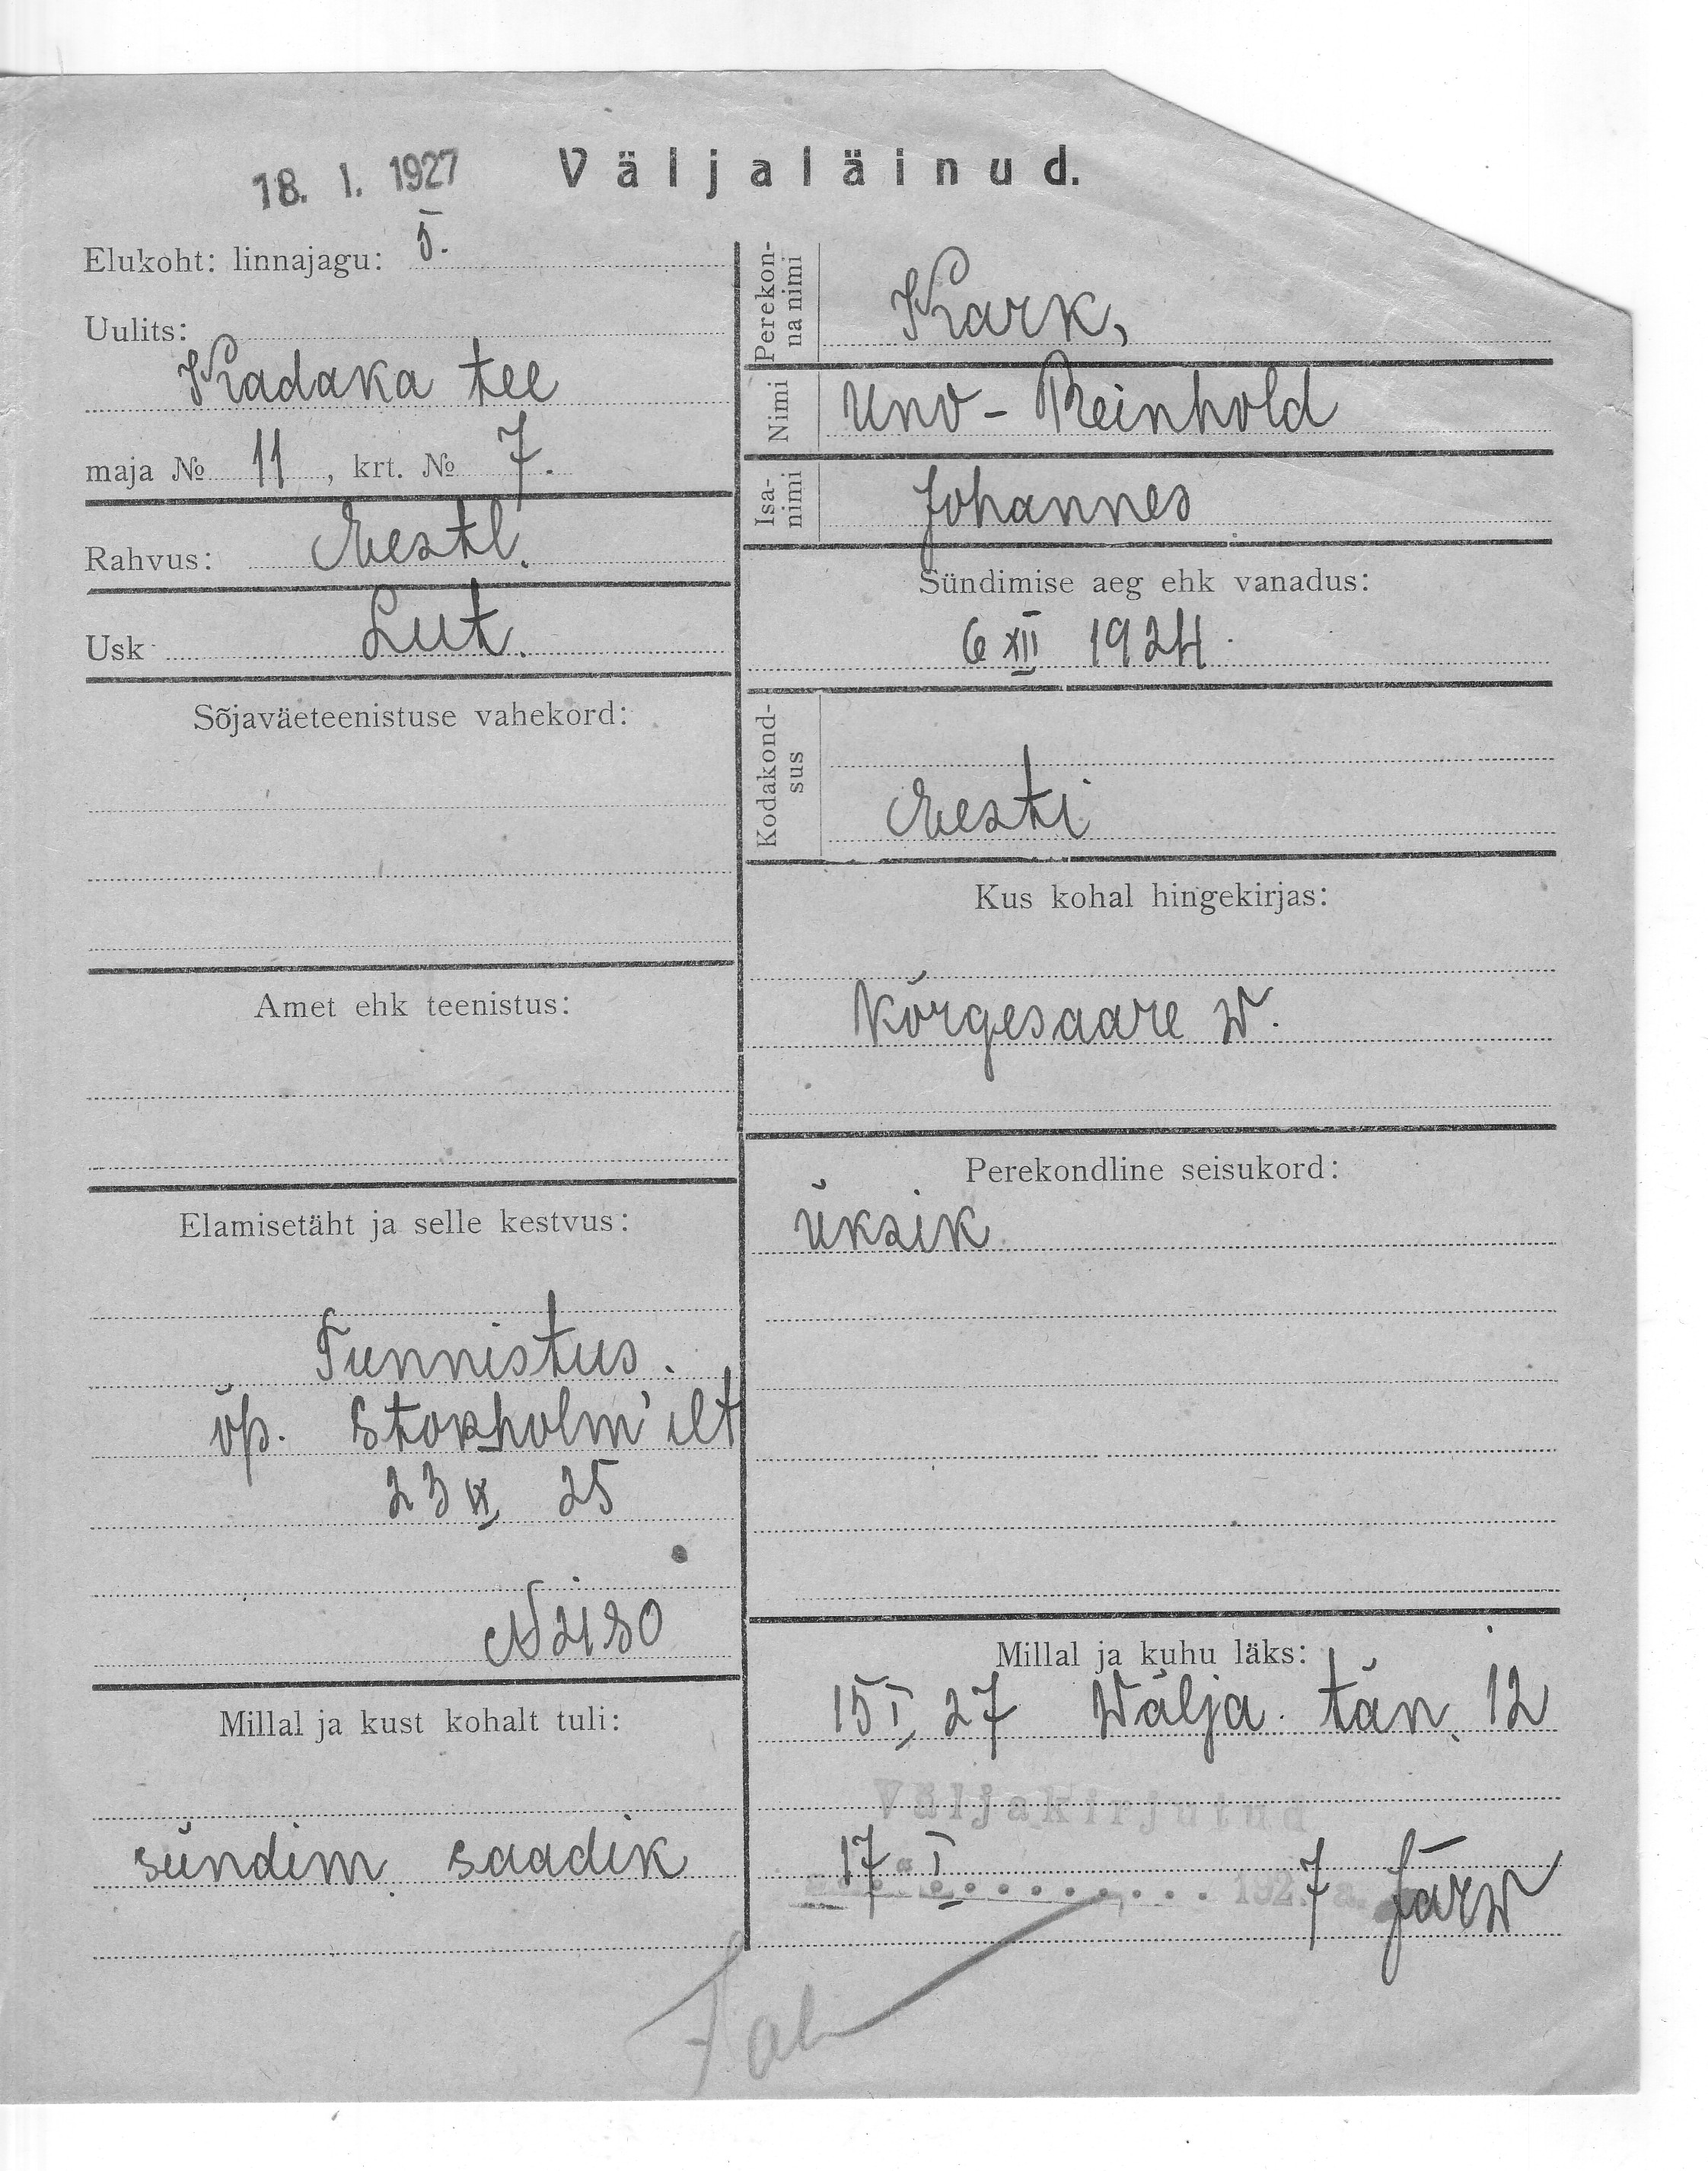 18. I. 1927 Väljaläinud.
Elukoht: linnajagu: 5.
Uulits:
Kadaka tee
maja № 11, krt. № 7.
Rahvus: Eestl.
Usk Lut.
Sõjaväeteenistuse vahekord:
Amet ehk teenistus:
Elamisetäht ja selle kestvus:
Tunnistus.
õp. Stokholm'ilt
23 IX 25
N 2180
Millal ja kust kohalt tuli:
sündim. saadik
Perekonna nimi
Kark,
Nimi
Uno-Reinhold
Isa-
nimi
Johannes
Sündimise aeg ehk vanadus:
6 XII 1924.
Kodakond-
sus
Eesti
Kus kohal hingekirjas:
Kõrgesaare w.
Perekondline seisukord:
üksik
Millal ja kuhu läks:
15 I 27 Wälja tän. 12
Väljakirjutud
17 I 1927 a. Järw